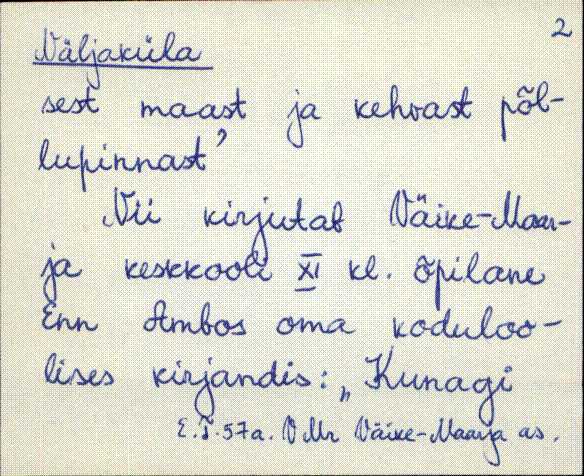 2
Näljaküla
sest maast ja kehvast põl-
lupinnast’
Nii kirjutab Väike-Maar-
ja keskkooli XI kl. õpilane
Enn Ambos oma koduloo-
lises kirjandis: „Kunagi
E.T. 57a. V Mr Väike-Maarja as.